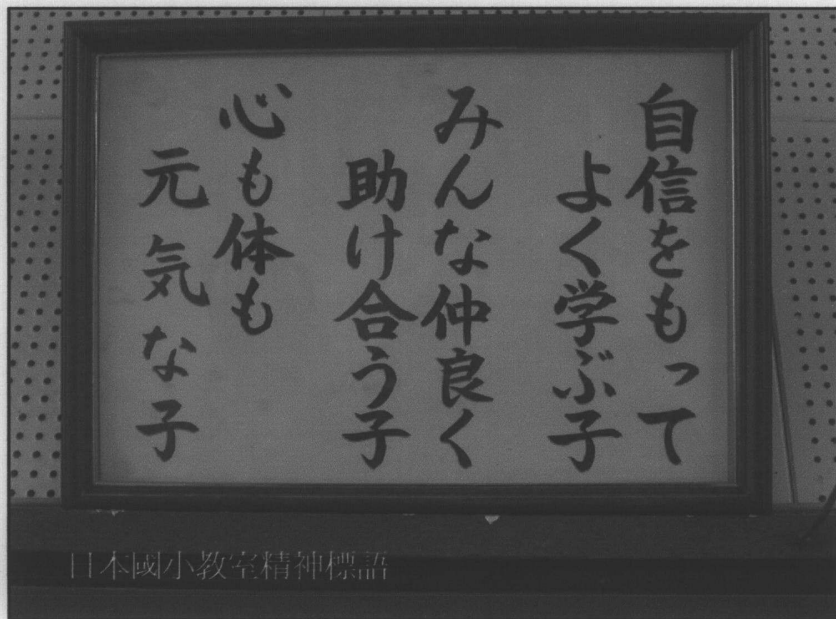 自信をもって
よく学ぶ子
みんな仲良く
助け合う子
心も体も
元気な子
日本國小教室精神標語